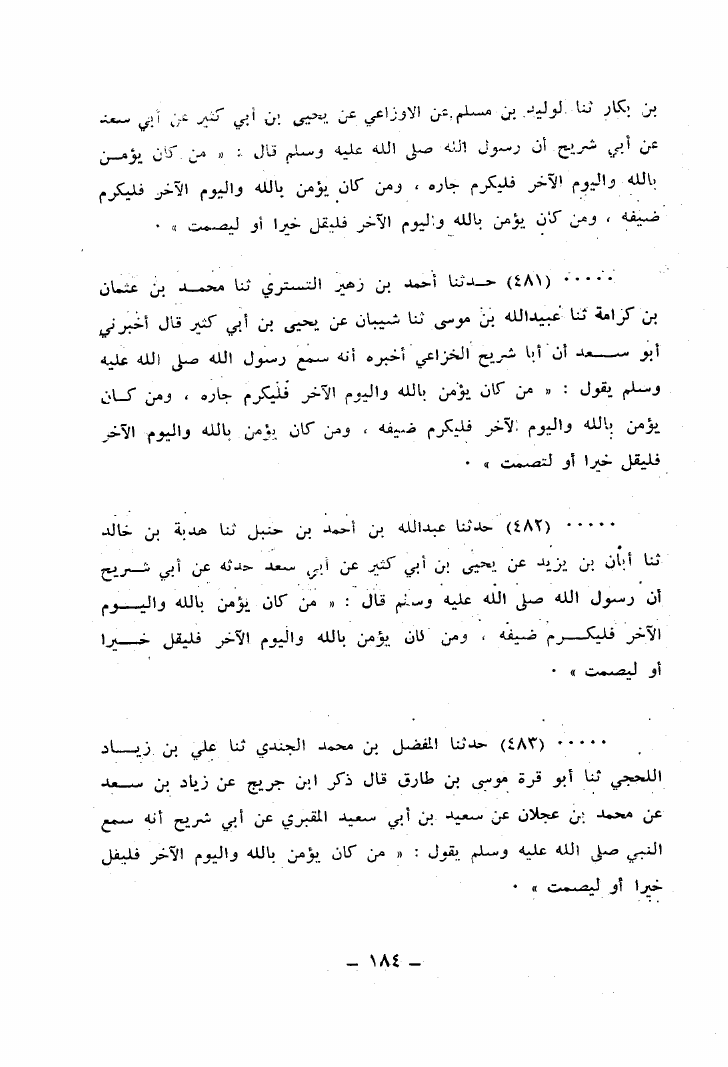 بن بكار ثنا الوليد بن مسلم عن الاوزاعي عن يحيى بن أبي كثير عن أبي سعد
عن أبي شريح أن رسول الله صلى الله عليه وسلم قال : « من كان يؤمــن
بالله واليوم الآخر فليكرم جاره ، ومن كان يؤمن بالله واليوم الآخر فليكرم
ضيفه ، ومن كان يؤمن بالله واليوم الآخر فليقل خيرا أو ليصمت » ٠
٠٠٠٠٠ (٤٨١) حــدثنا أحمد بن زهير التستري ثنا محمــد بن عثمان
بن كرامة ثنا عبيدالله بن موسى ثنا شيبان عن يحيى بن أبي كثير قال أخبرني
أبو ســــعد أن أبا شريح الخزاعي أخبره أنه سمع رسول الله صلى الله عليه
وسلم يقول : « من كان يؤمن بالله واليوم الآخر فليكرم جاره ، ومن كــان
يؤمن بالله واليوم الآخر فليكرم ضيفه ، ومن كان يؤمن بالله واليوم الآخر
فليقل خيرا أو لتصمت » ٠
٠٠٠٠٠ (٤٨٢) حدثنا عبدالله بن أحمد بن حنبل ثنا هدبة بن خالد
ثنا أبان بن يزيد عن يحيى بن أبي كثير عن أبي سعد حدثه عن أبي شــريح
أن رسول الله صلى الله عليه وسلم قال : « من كان يؤمن بالله واليــوم
الآخر فليكــرم ضيفه ، ومن كان يؤمن بالله واليوم الآخر فليقل خــيرا
أو ليصمت » ٠
٠٠٠٠٠ (٤٨٣) حدثنا المفضل بن محمد الجندي ثنا علي بن زيــاد
اللحجي ثنا أبو قرة موسى بن طارق قال ذكر ابن جريج عن زياد بن ســعد
عن محمد بن عجلان عن سعيد بن أبي سعيد المقبري عن أبي شريح أنه سمع
النبي صلى الله عليه وسلم يقول : « من كان يؤمن بالله واليوم الآخر فليقل
خيرا أو ليصمت » ٠
– ١٨٤ –